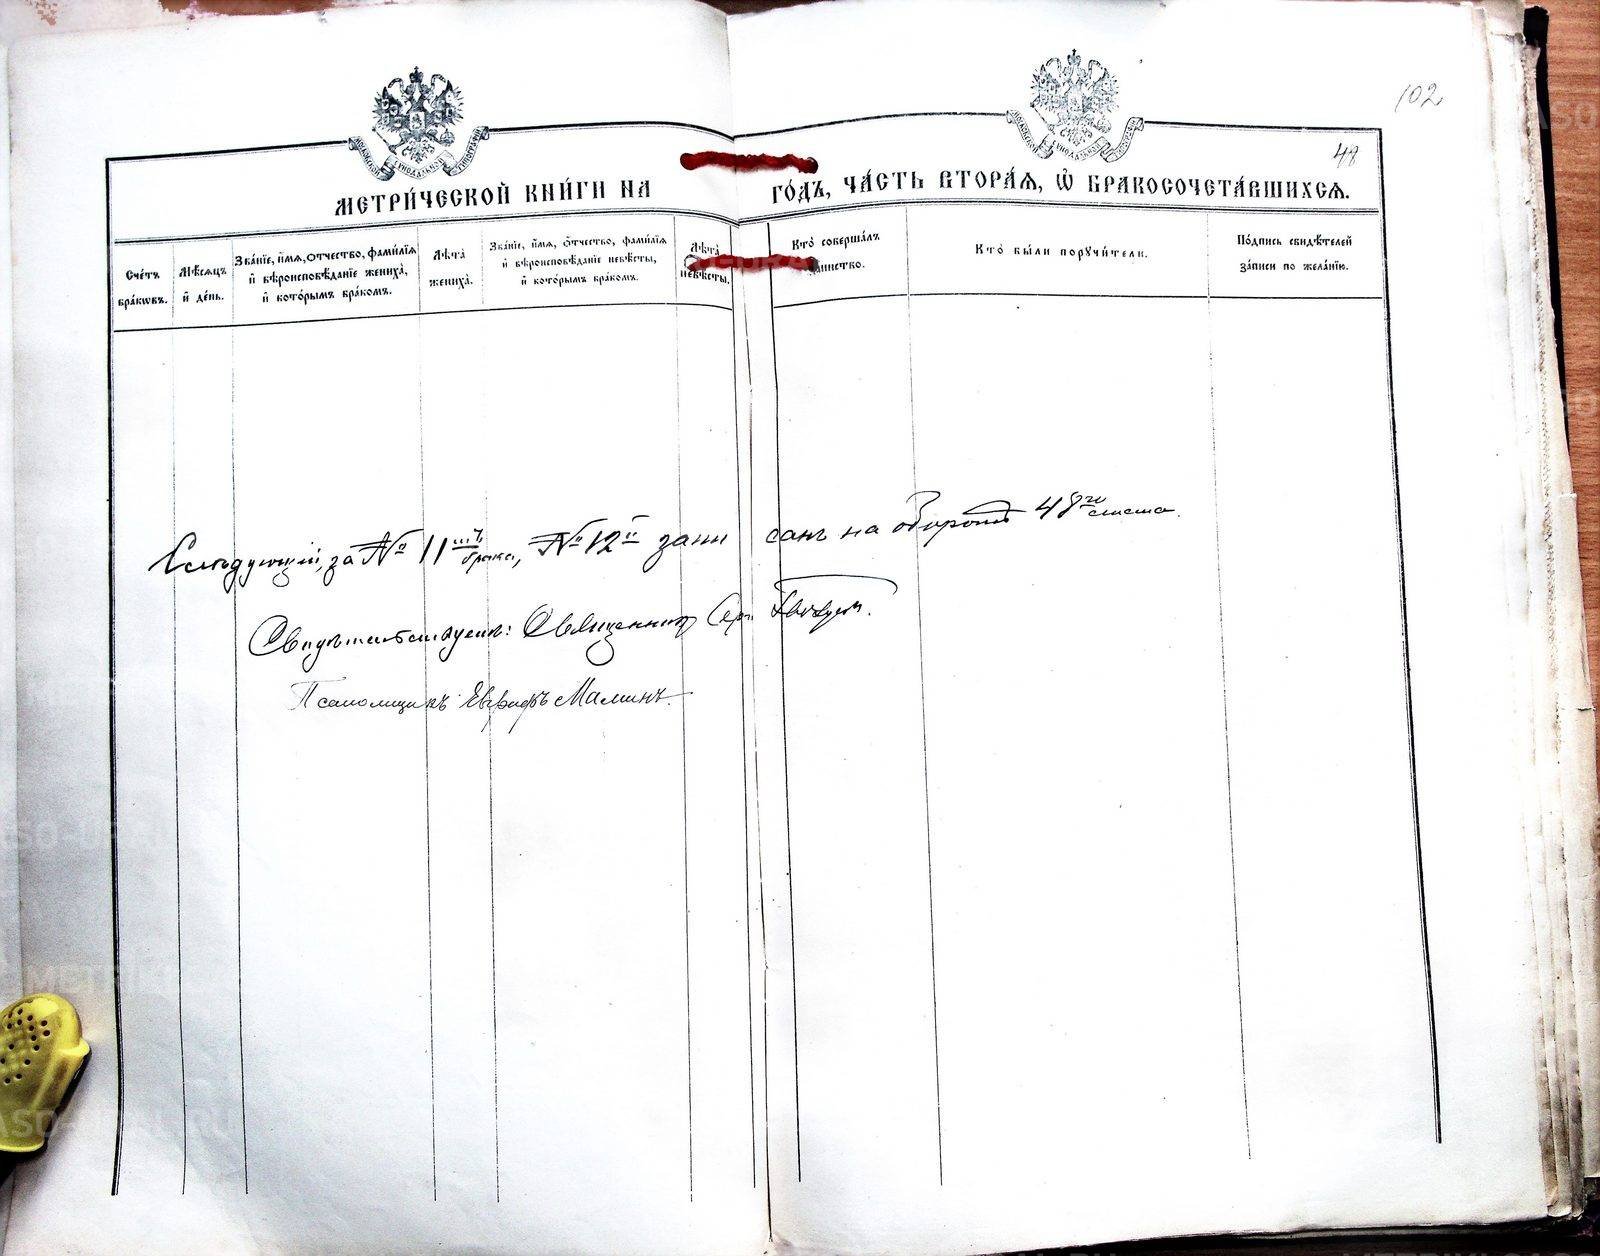 102
48
МЕТРИ́ЧЕСКОЙ КНИ́ГИ НА ГО́ДЪ, ЧА́СТЬ ВТОРА́Я, Ѿ БРАКОСОЧЕТА́ВШИХСЯ.
Сче́тъ бра́ковъ.
Мѣ́сяцъ и҆ де́нь.
Зва́нїе, и҆́мя, ѻ҆́тчество, фамилїя и҆ вѣроисповѣ́данїе жениха́, и҆ кото́рымъ бра́комъ.
Лѣ́та жениха́.
Зва́нїе, и҆́мя, ѻ҆́тчество, фамилїя и҆ вѣроисповѣ́данїе невѣ́сты, и҆ кото́рымъ бра́комъ.
Лѣ́та невѣ́сты.
Кто̀ соверша́лъ таинство.
Кто̀ бы́ли порꙋчи́тели.
По́дпись свидѣ́телей за́писи по жела́нїю.
Слѣдующій, за № 11 мъ брака, № 12й записанъ на оборотѣ 48го листа.
Свидѣтельствуемъ: Священникъ
Псаломщикъ Евграфъ Маминъ.